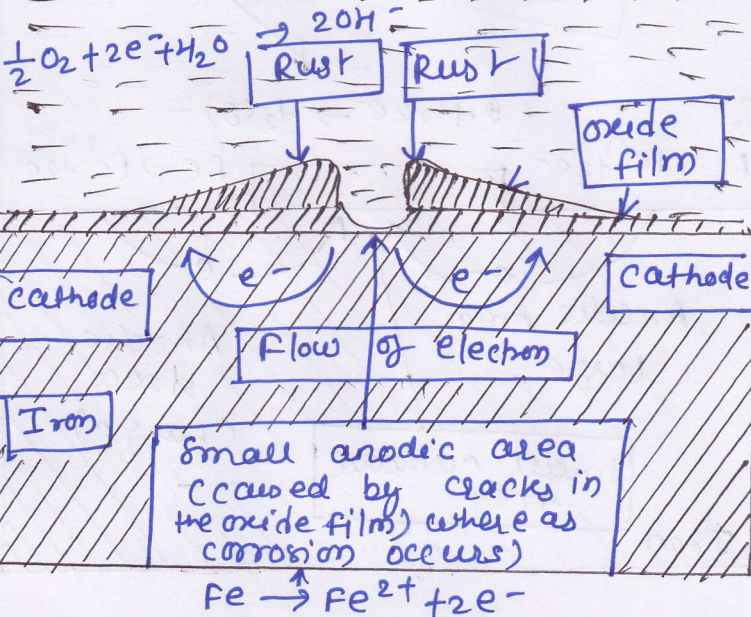 1/2 O2 + 2e- + H2O → 2OH-
Rust
Rust
oxide
film
e-
e-
Cathode
Cathode
Flow of electron
Iron
Small anodic area
(caused by cracks in
the oxide film) where as
corrosion occurs)
Fe → Fe2+ + 2e-